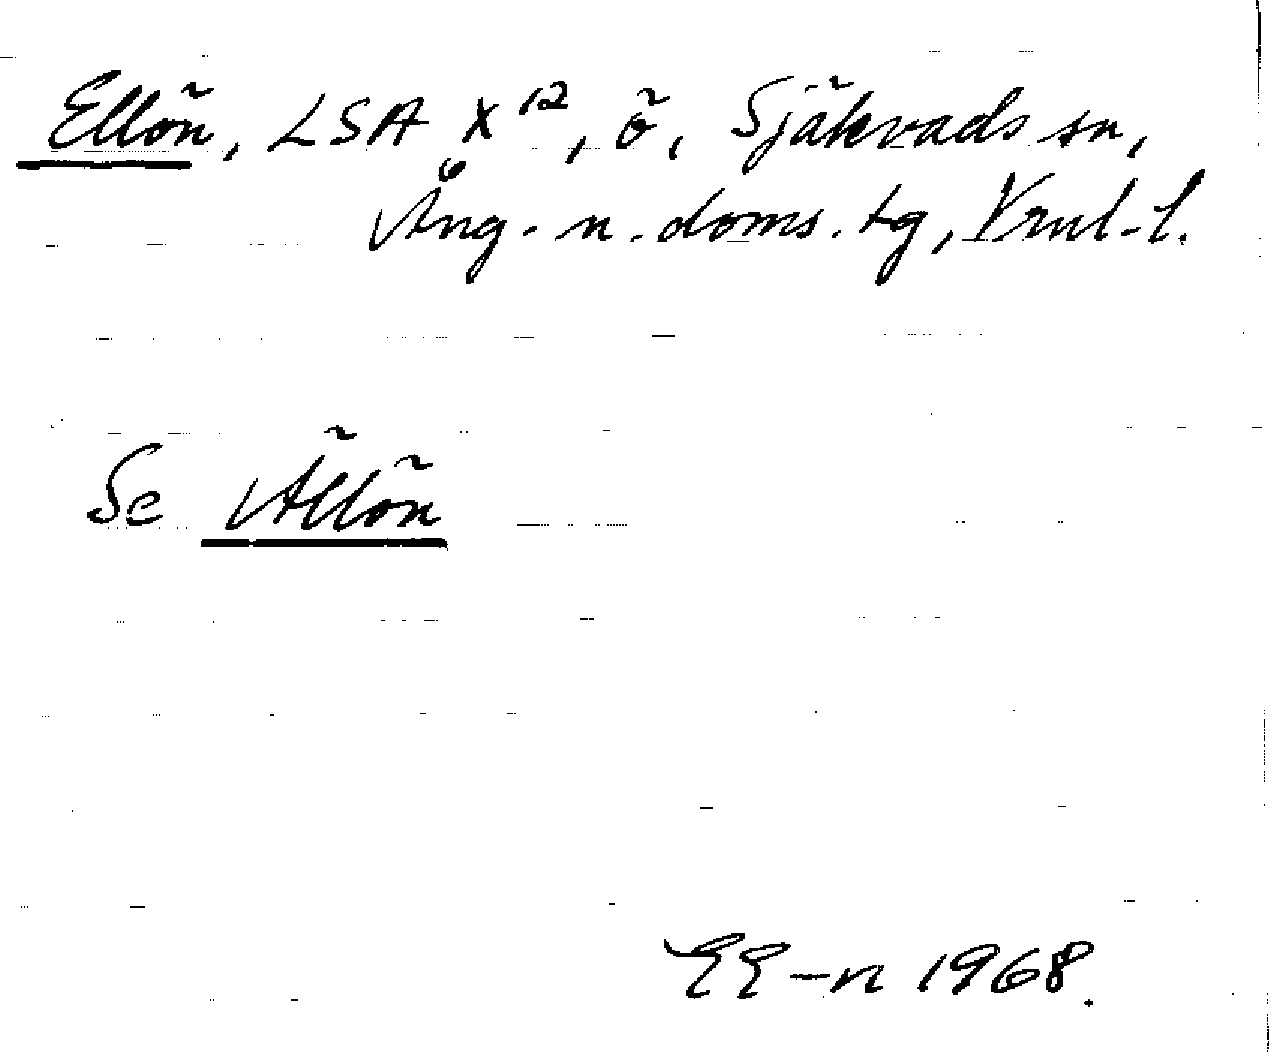 Ellön, LSA X 12, ö, Själevads sn,
Ång. n. doms. tg, Vrnl-l.
Se Ällön
EE-n 1968.